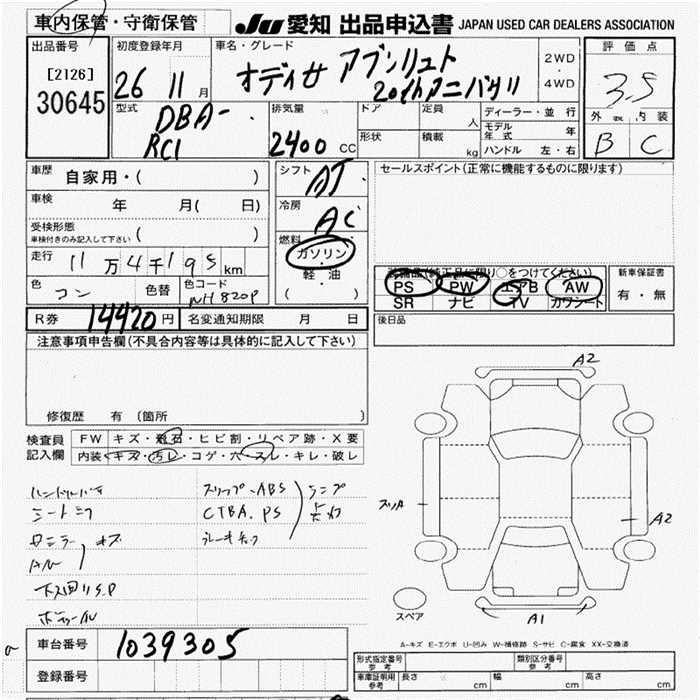 車内保管・守衛保管
JU 愛知 出品申込書 JAPAN USED CAR DEALERS ASSOCIATION
出品番号
[2126]
30645
初度登録年月
26 11月
車名・グレード
オディセ アブソリュート
20thアニバサリ
2WD
・
4WD
評価点
3.5
外装 内装
B C
型式
DBA-
RC1
排気量
2400 cc
ドア
形状
定員 人
積載 kg
ディーラー・並行
モデル年式 年
ハンドル 左・右
車歴
自家用・( )
車検 年 月( 日)
受検形態
車検付きのみ記入して下さい ( )
走行 11万4千195km
色 コン 色替 色コード NH820P
シフト AT
冷房 AC
燃料
ガソリン
・
軽・油
( )
セールスポイント(正常に機能するものに限ります)
装備品(純正品に限り○をつけてください)
PS PW エアB AW
SR ナビ TV カワシート
新車保証書
有・無
R券 14420円 名変通知期限 月 日
後日品
注意事項申告欄(不具合内容等は具体的に記入して下さい)
修復歴 有(箇所 )
検査員
記入欄
FW キズ・飛石・ヒビ割・リペア跡・X要
内装 キズ・汚レ・コゲ・穴・スレ・キレ・破レ
スリップ.ABS
CTBA.PS
ランプ
A2
スリA
A2
A1
スペア
A-キズ E-エクボ U-凹み W-補修跡 S-サビ C-腐食 XX-交換済
車台番号 1039305
登録番号
形式指定番号
参考
類別区分番号
参考
車庫証明用
参考
長さ cm 幅 cm 高さ cm